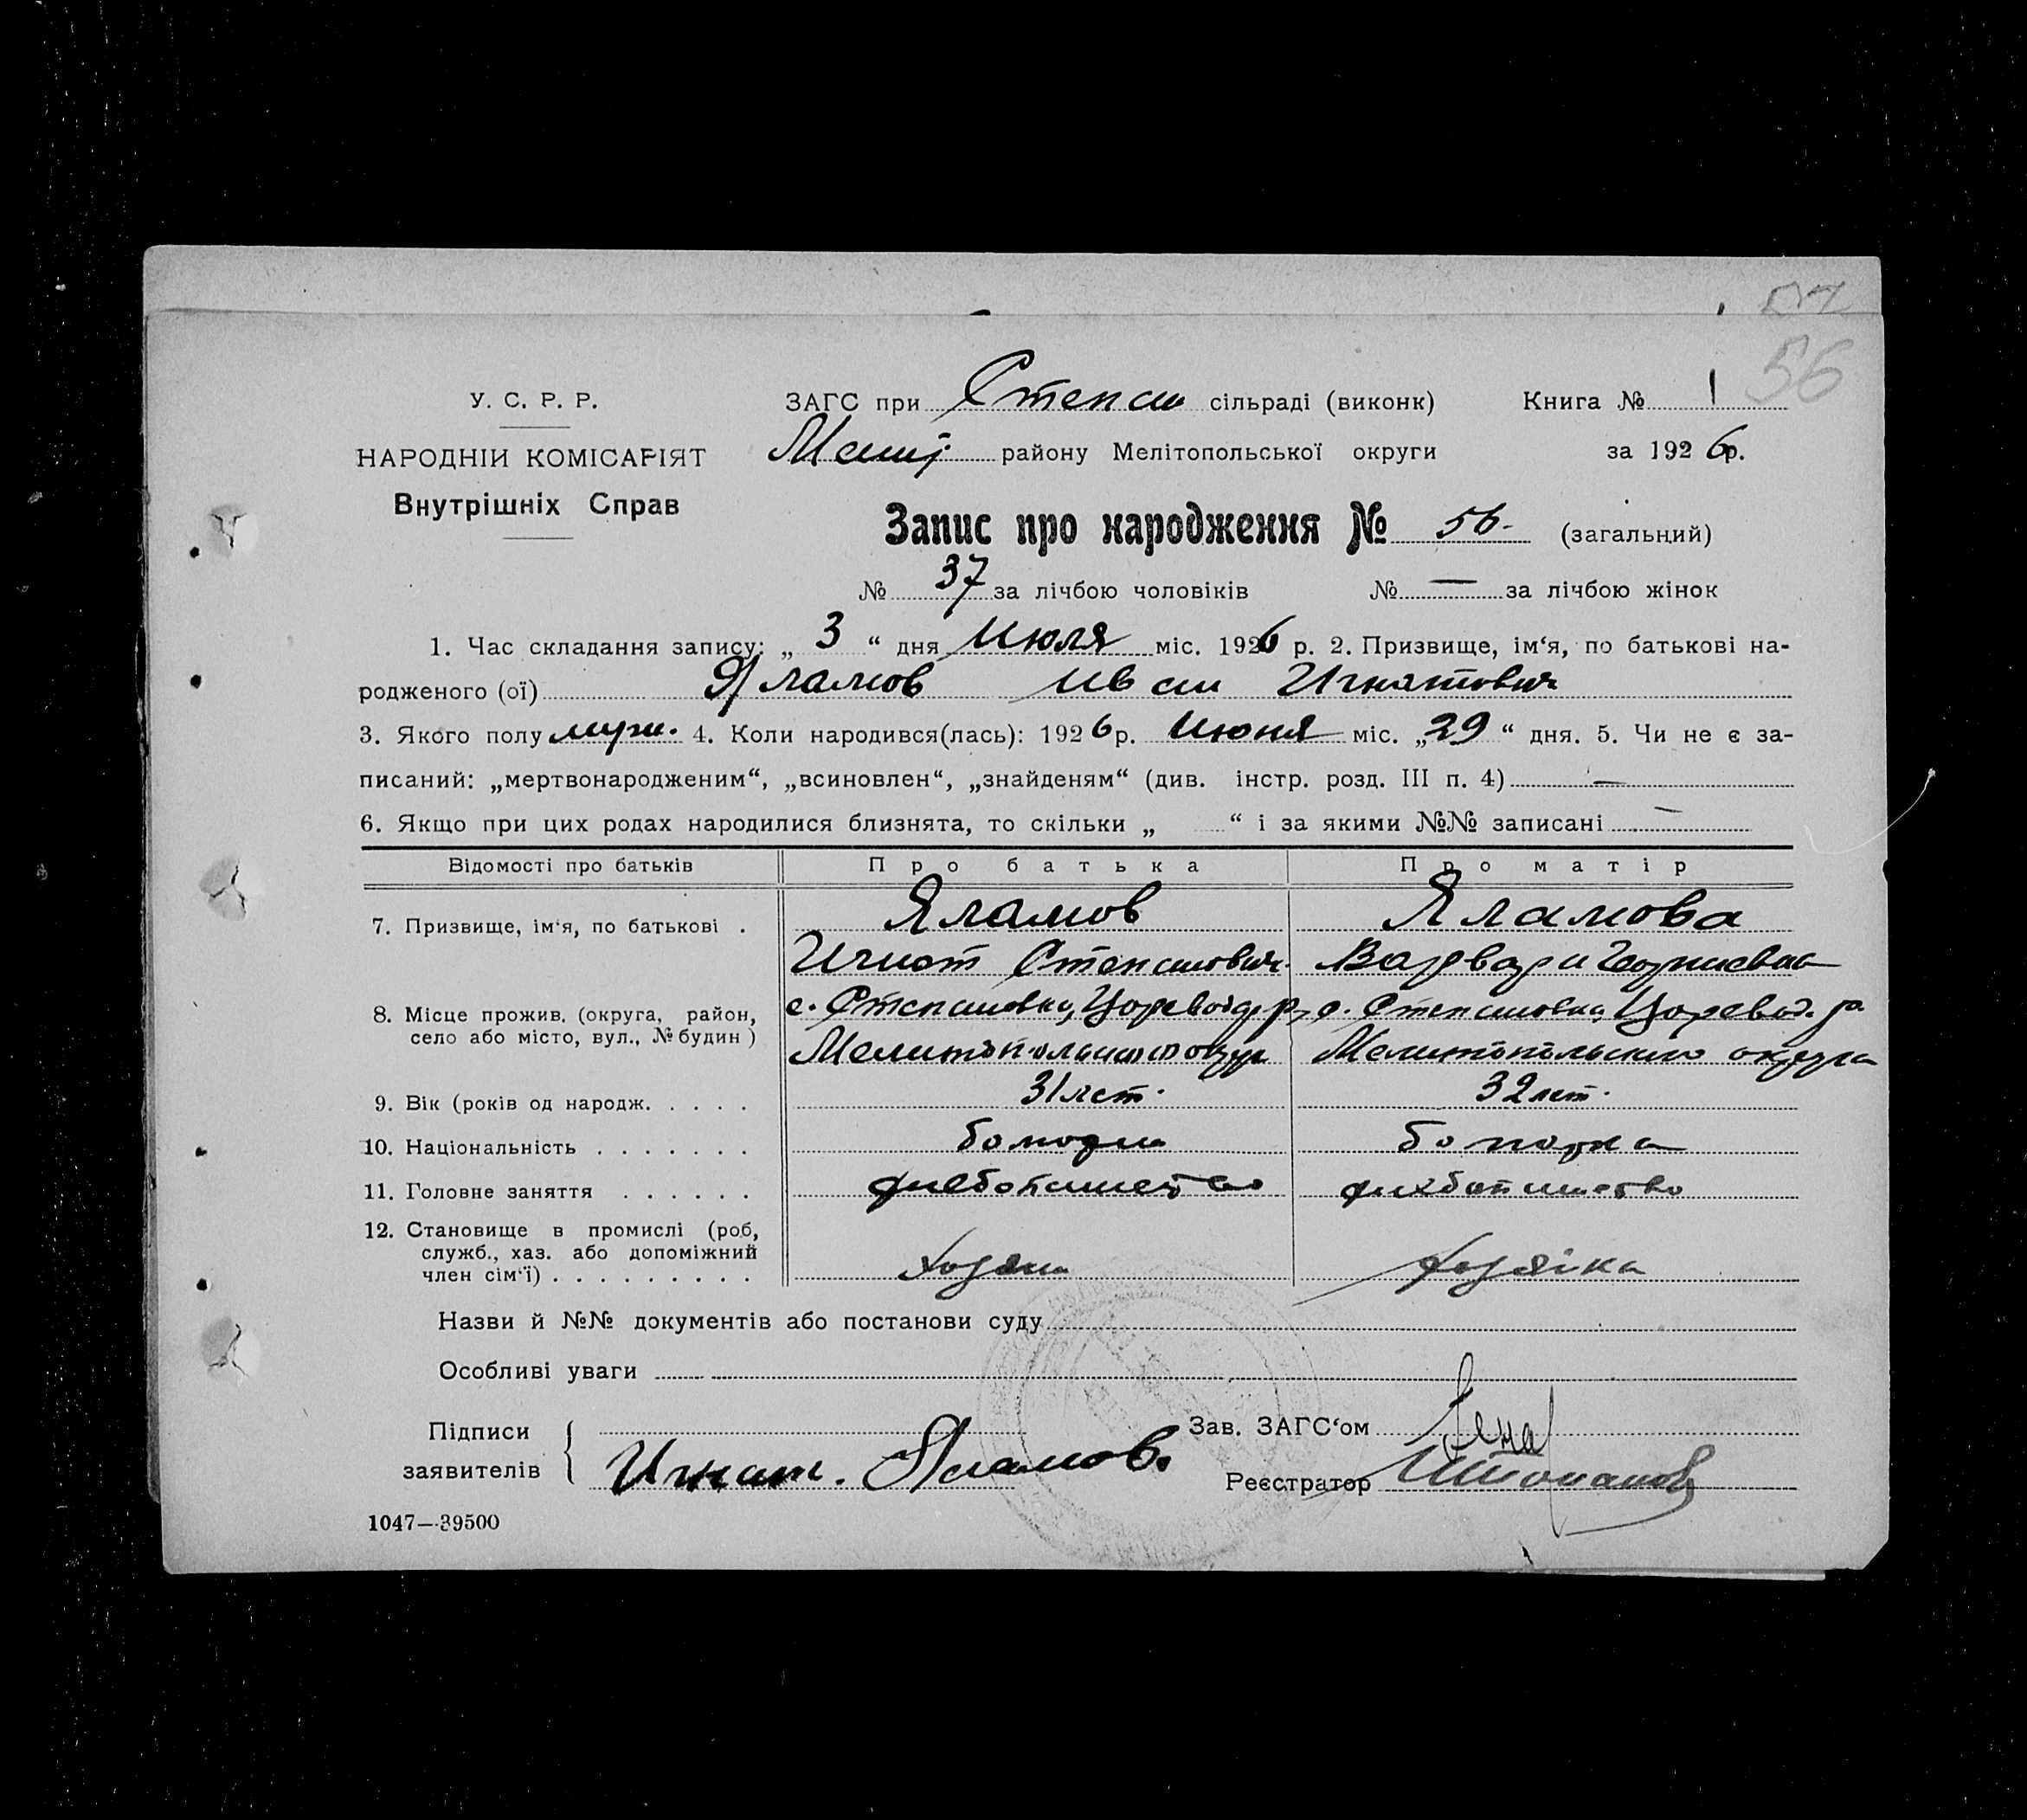 57
56
У. С. Р. Р.
ЗАГС при Степан сільраді (виконк) Книга № 1
НАРОДНІИ КОМІСАРІЯТ
району Мелітопольської округи за 1926р.
Внутрішніх Справ
Запис про народження № 56- (загальний)
№ 37 за лічбою чоловіків № — за лічбою жінок
1. Час складання запису: „ 3 “ дня Июля міс. 1926 р. 2. Призвище, ім‘я, по батькові на-
родженого (ої) Яламов Иван Игнатович
3. Якого полу муж. 4. Коли народився(лась): 1926р. Июня міс. „29“ дня. 5. Чи не є за-
писаний: „мертвонародженим“, „всиновлен“, „знайденям“ (див. інстр. розд. III п. 4) —
6. Якщо при цих родах народилися близнята, то скільки „ “ і за якими №№ записані —
Відомості про батьків Про батька Про матір
7. Призвище, ім‘я, по батькові . Яламов Яламова
Игнат Степанович Варвара Георгиевна
8. Місце прожив. (округа, район, с. Степановка, Царевод. р, с. Степановка, Царевод. р
село або місто, вул., № будин) Мелитопольского округа Мелитопольского округа
9. Вік (років од народж. . . . . 31 лет. 32 лет.
10. Національність . . . . . . .
11. Головне заняття . . . . . . хлебопашество хлебопашество
12. Становище в промислі (роб,
служб., хаз. або допоміжний
член сім‘ї) . . . . . . . . . Хозяин Хозяіка
Назви й №№ документів або постанови суду
Особливі уваги
Підписи
заявителів Игнат. Яламов.
Зав. ЗАГС‘ом
Реєстратор
1047—39500